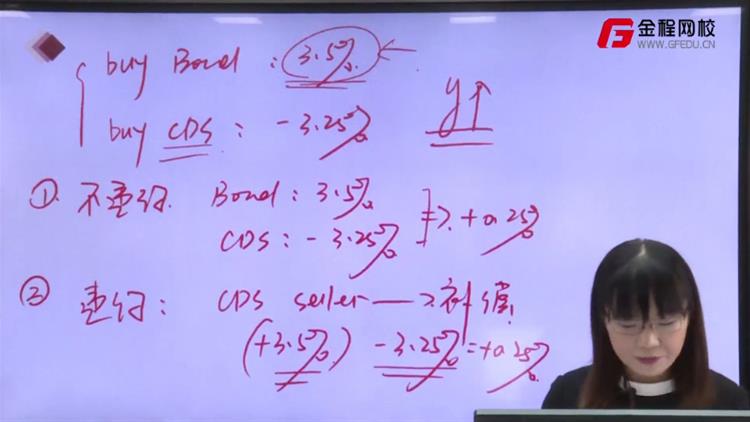 金程网校
WWW.GFEDU.CN
buy Bond : 3.5%
buy CDS : -3.25%
y↑
① 不违约. Bond : 3.5%
CDS : -3.25% ⇒ +0.25%
② 违约: CDS seller → 补偿
(+3.5%) -3.25% = +0.25%